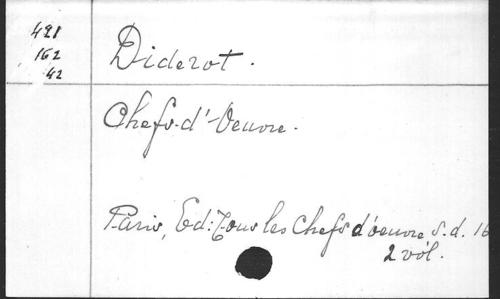 491
162
42
Diderot.
Chefs-d'-Oeuvre.
Paris, Ed: Tous les Chefs d'oeuvre s.d. 16
2 vol.